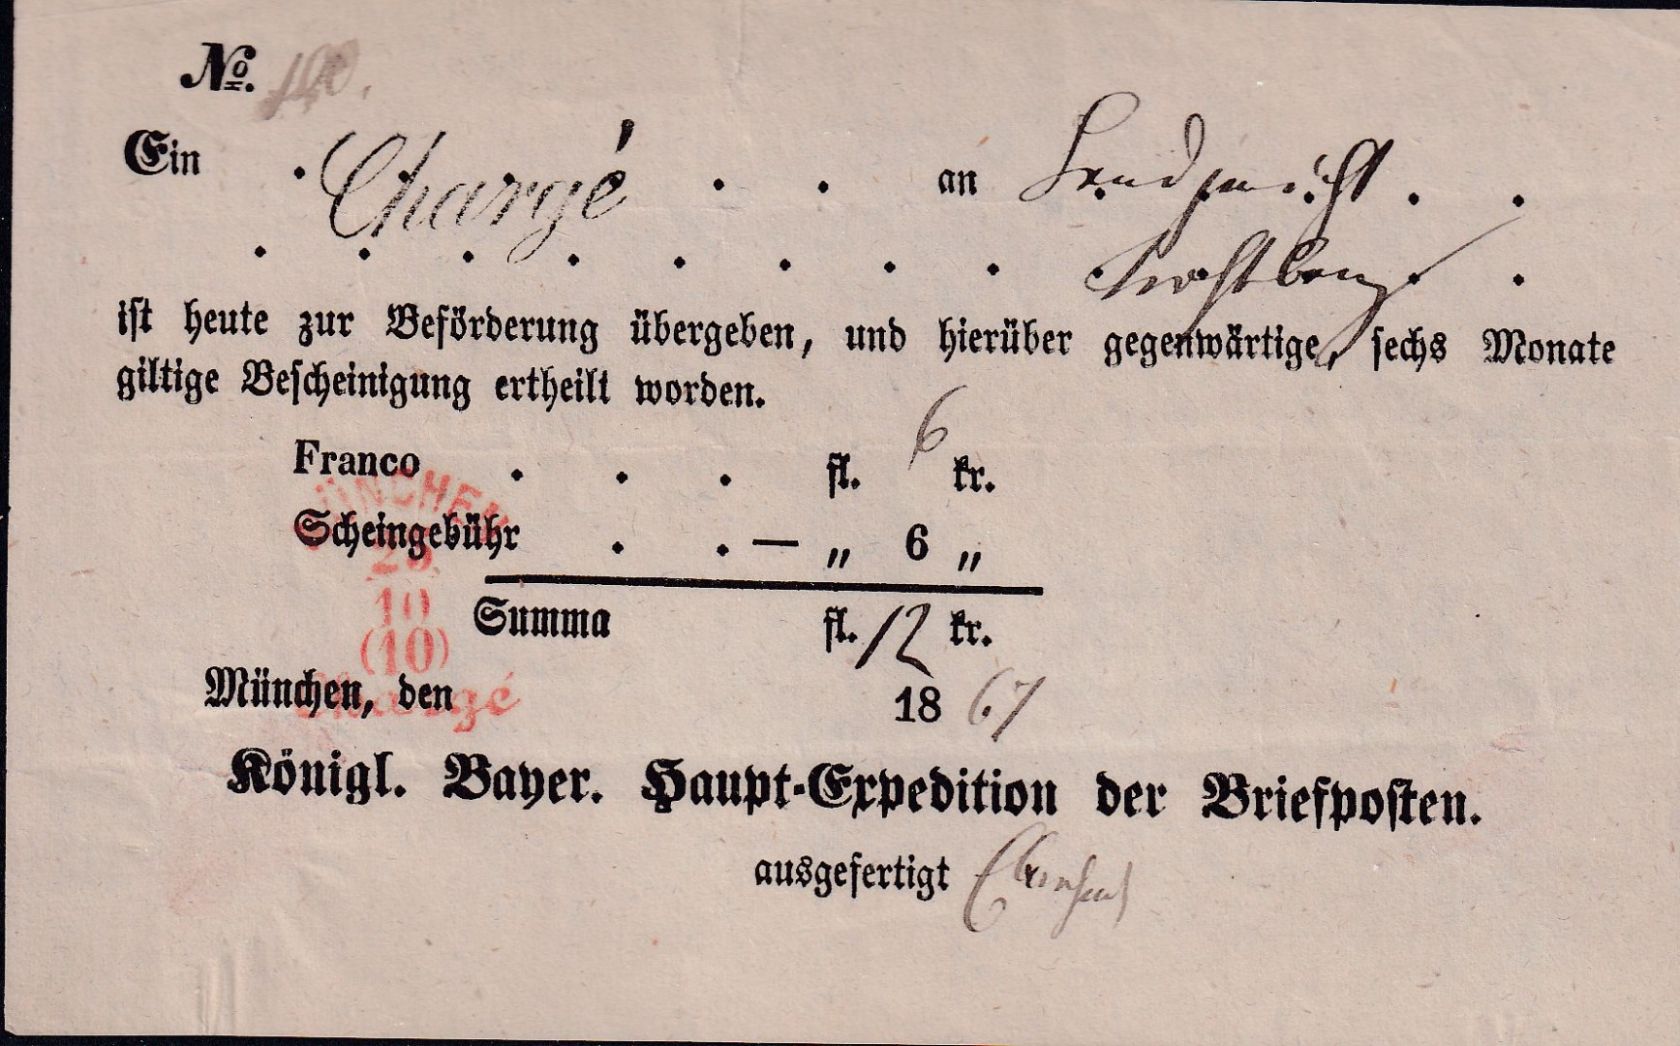 No.
Ein Chargé an Landgericht
ist heute zur Beförderung übergeben, und hierüber gegenwärtige, sechs Monate
giltige Bescheinigung ertheilt worden.
Franco . . . fl. 6 kr.
MÜNCHEN
Scheingebühr . . — „ 6 „
10
(10)
Summa fl. 12 kr.
Chargé
München, den 1867
Königl. Bayer. Haupt-Expedition der Briefposten.
ausgefertigt